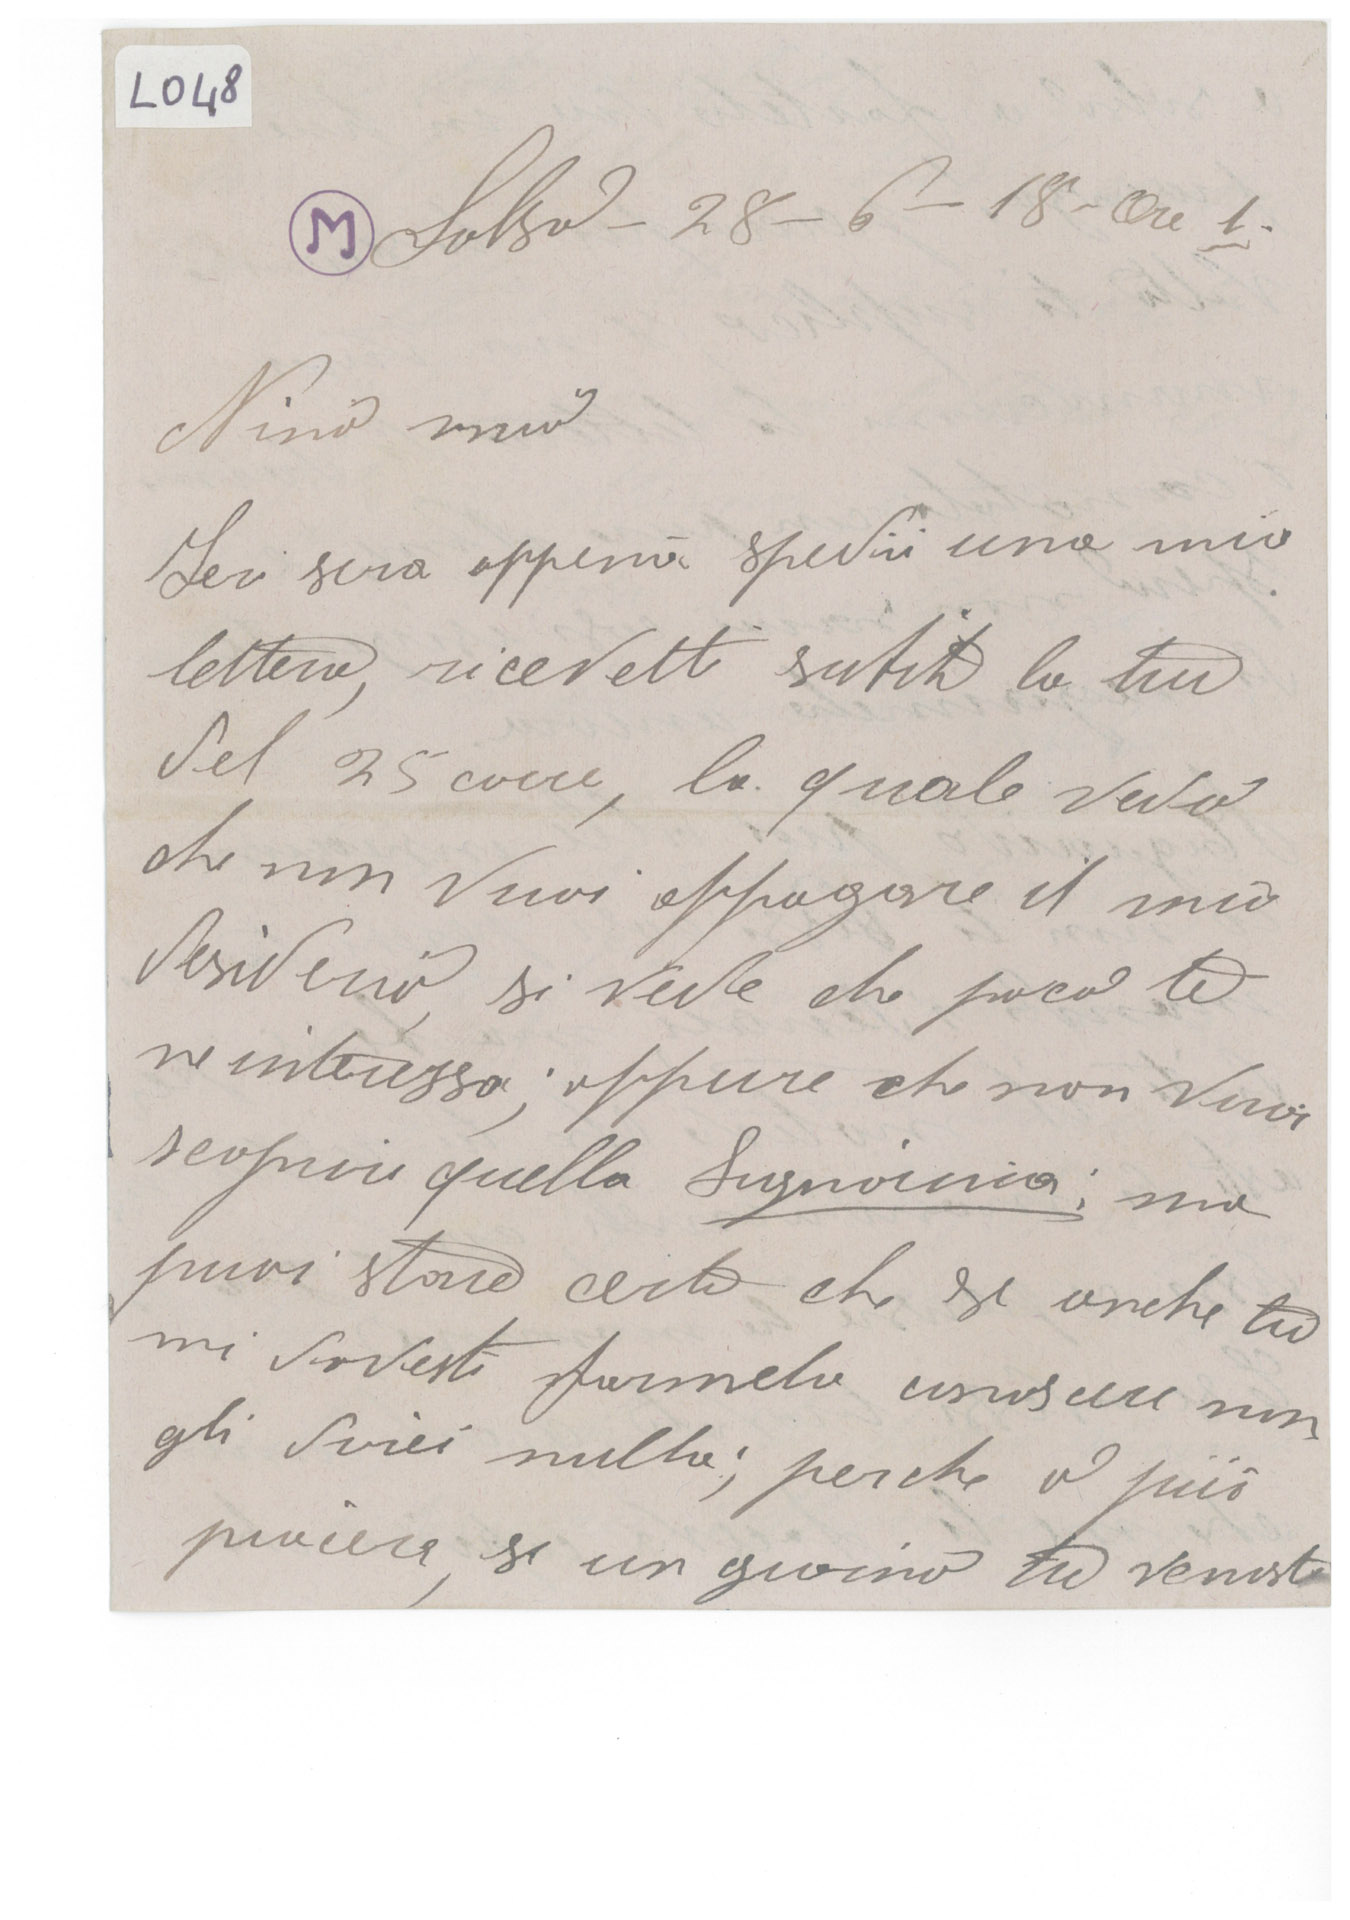 L048
M Salsò - 28 - 6 - 18 - Ore 1.
Nino mio
Ieri sera appena spedii una mia
lettera, ricevetti subito la tua
del 25 corre, la quale vedo
che non vuoi appagare il mio
desiderio, si vede che poco te
ne interessa; oppure che non vuoi
scoprire quella Signorina; ma
puoi stare certo che se anche tu
mi dovesti farmela conoscere non
gli direi nulla; perche o più
piacere, se un giorno tu venisti